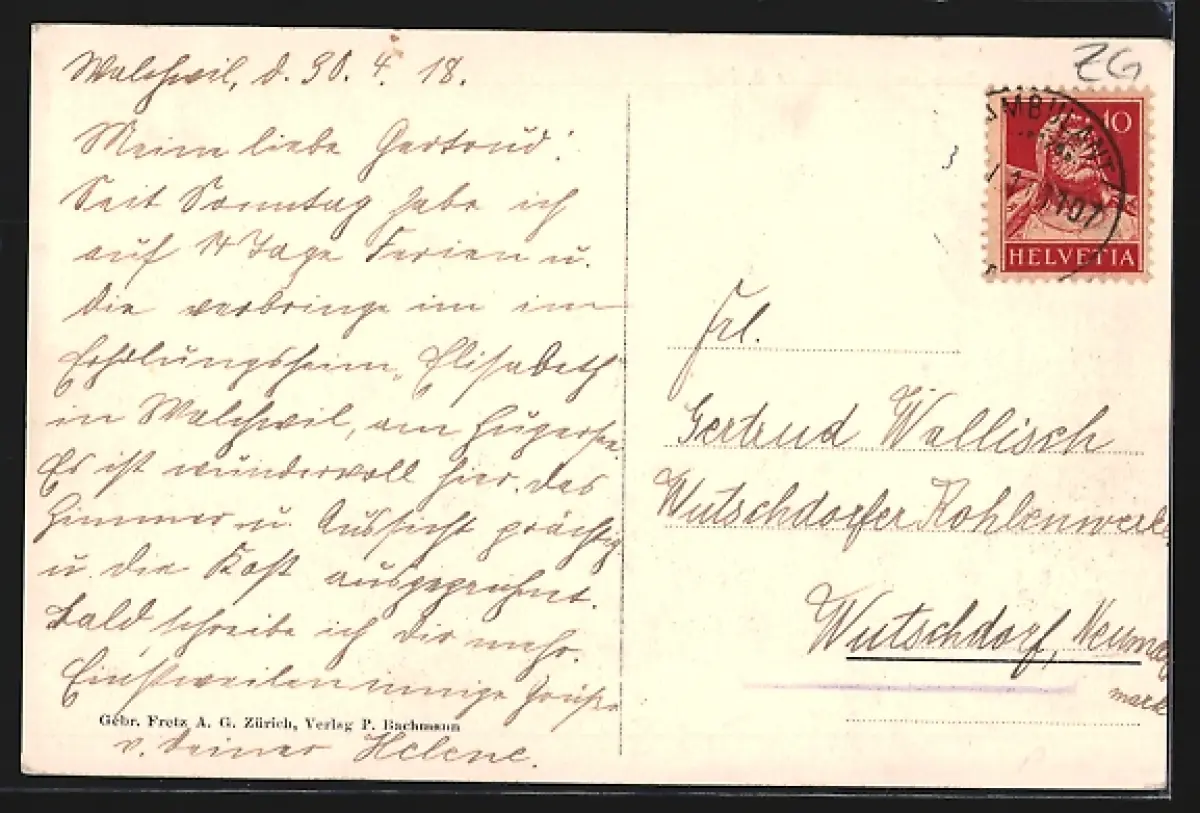 Walchwil, d. 30. 4. 18.
Meine liebe Gertrud!
Seit Sonntag habe ich
auf 14 Tage Ferien u.
die verbringe im
Erholungsheim „Elisabeth"
in Walchwil, am Zugersee.
Es ist wundervoll hier. das
Zimmer u. Aussicht prächtig
u. die Kost ausgezeichnet.
Bald schreibe ich Dir mehr.
Einstweilen innige Grüße
Gebr. Fretz A. G. Zürich, Verlag P. Bachmann
v. Deiner Helene.
ZG
AMBULANT
10
HELVETIA
Frl.
Gertrud Wallisch
Wutschdorfer Kohlenwerke
Wutschdorf, Neumar
mark